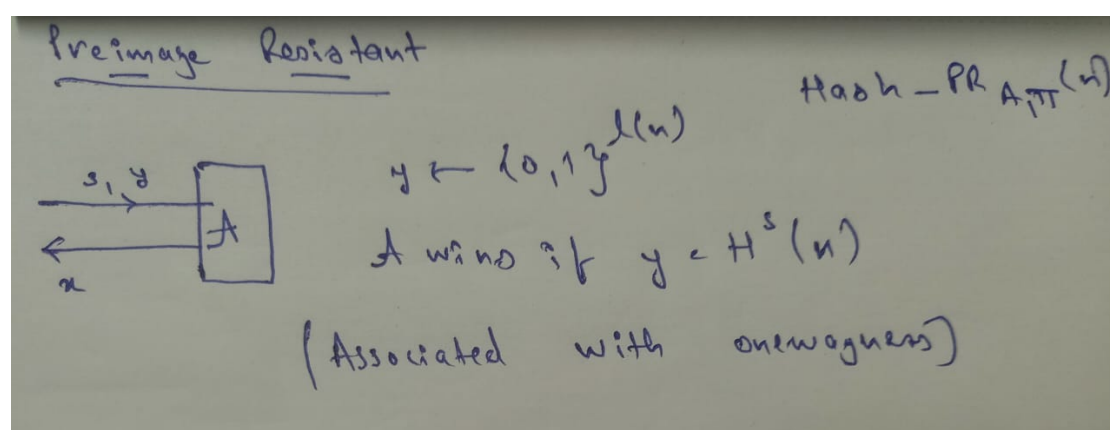 Preimage Resistant
Hash-PR A,Π (n)
y ← {0,1}^l(n)
s, y
A
x
A wins if y = H^s(x)
(Associated with onewayness)